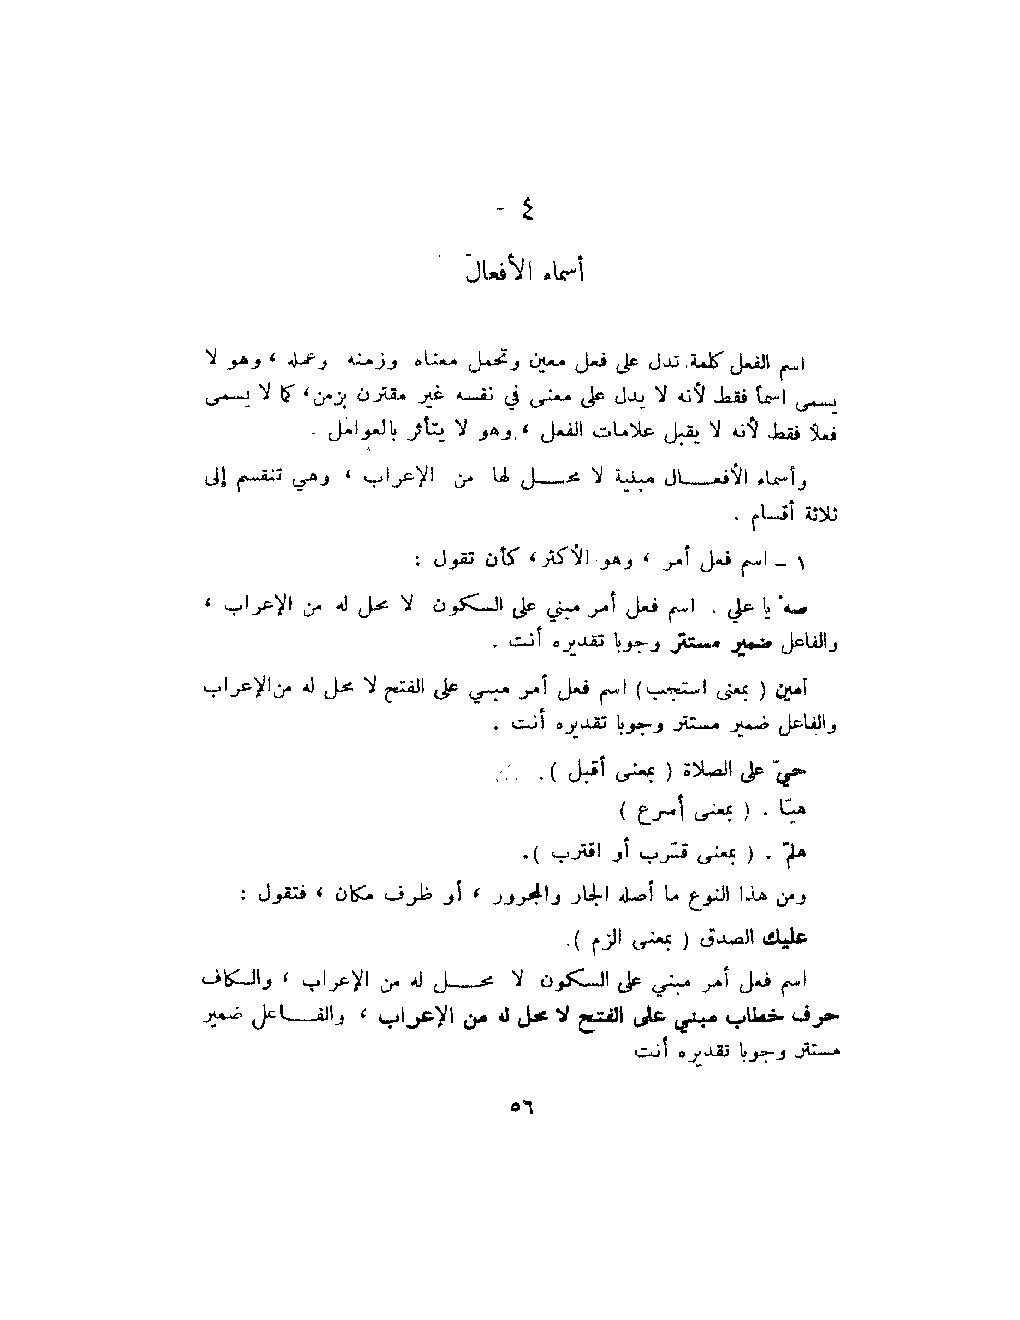 ٤ -
أسماء الأفعال
اسم الفعل كلمة تدل على فعل معين وتحمل معناه وزمنه وعمله ، وهو لا
يسمى اسماً فقط لأنه لا يدل على معنى في نفسه غير مقترن بزمن ، كما لا يسمى
فعلاً فقط لأنه لا يقبل علامات الفعل ، وهو لا يتأثر بالعوامل .
وأسماء الأفعـــال مبنية لا محـــل لها من الإعراب ، وهي تنقسم إلى
ثلاثة أقسام .
١ ـ اسم فعل أمر ، وهو الأكثر ، كأن تقول :
صهْ يا علي . اسم فعل أمر مبني على السكون لا محل له من الإعراب ،
والفاعل ضمير مستتر وجوبا تقديره أنت .
آمين ( بمعنى استجب ) اسم فعل أمر مبني على الفتح لا محل له من الإعراب
والفاعل ضمير مستتر وجوبا تقديره أنت .
حيّ على الصلاة ( بمعنى أقبل ) .
هيّا . ( بمعنى أسرع )
هلمّ . ( بمعنى قرّب أو اقترب ) .
ومن هذا النوع ما أصله الجار والمجرور ، أو ظرف مكان ، فتقول :
عليك الصدق ( بمعنى الزم ) .
اسم فعل أمر مبني على السكون لا محـــل له من الإعراب ، والكاف
حرف خطاب مبني على الفتح لا محل له من الإعراب ، والفـــاعل ضمير
مستتر وجوبا تقديره أنت
٥٦